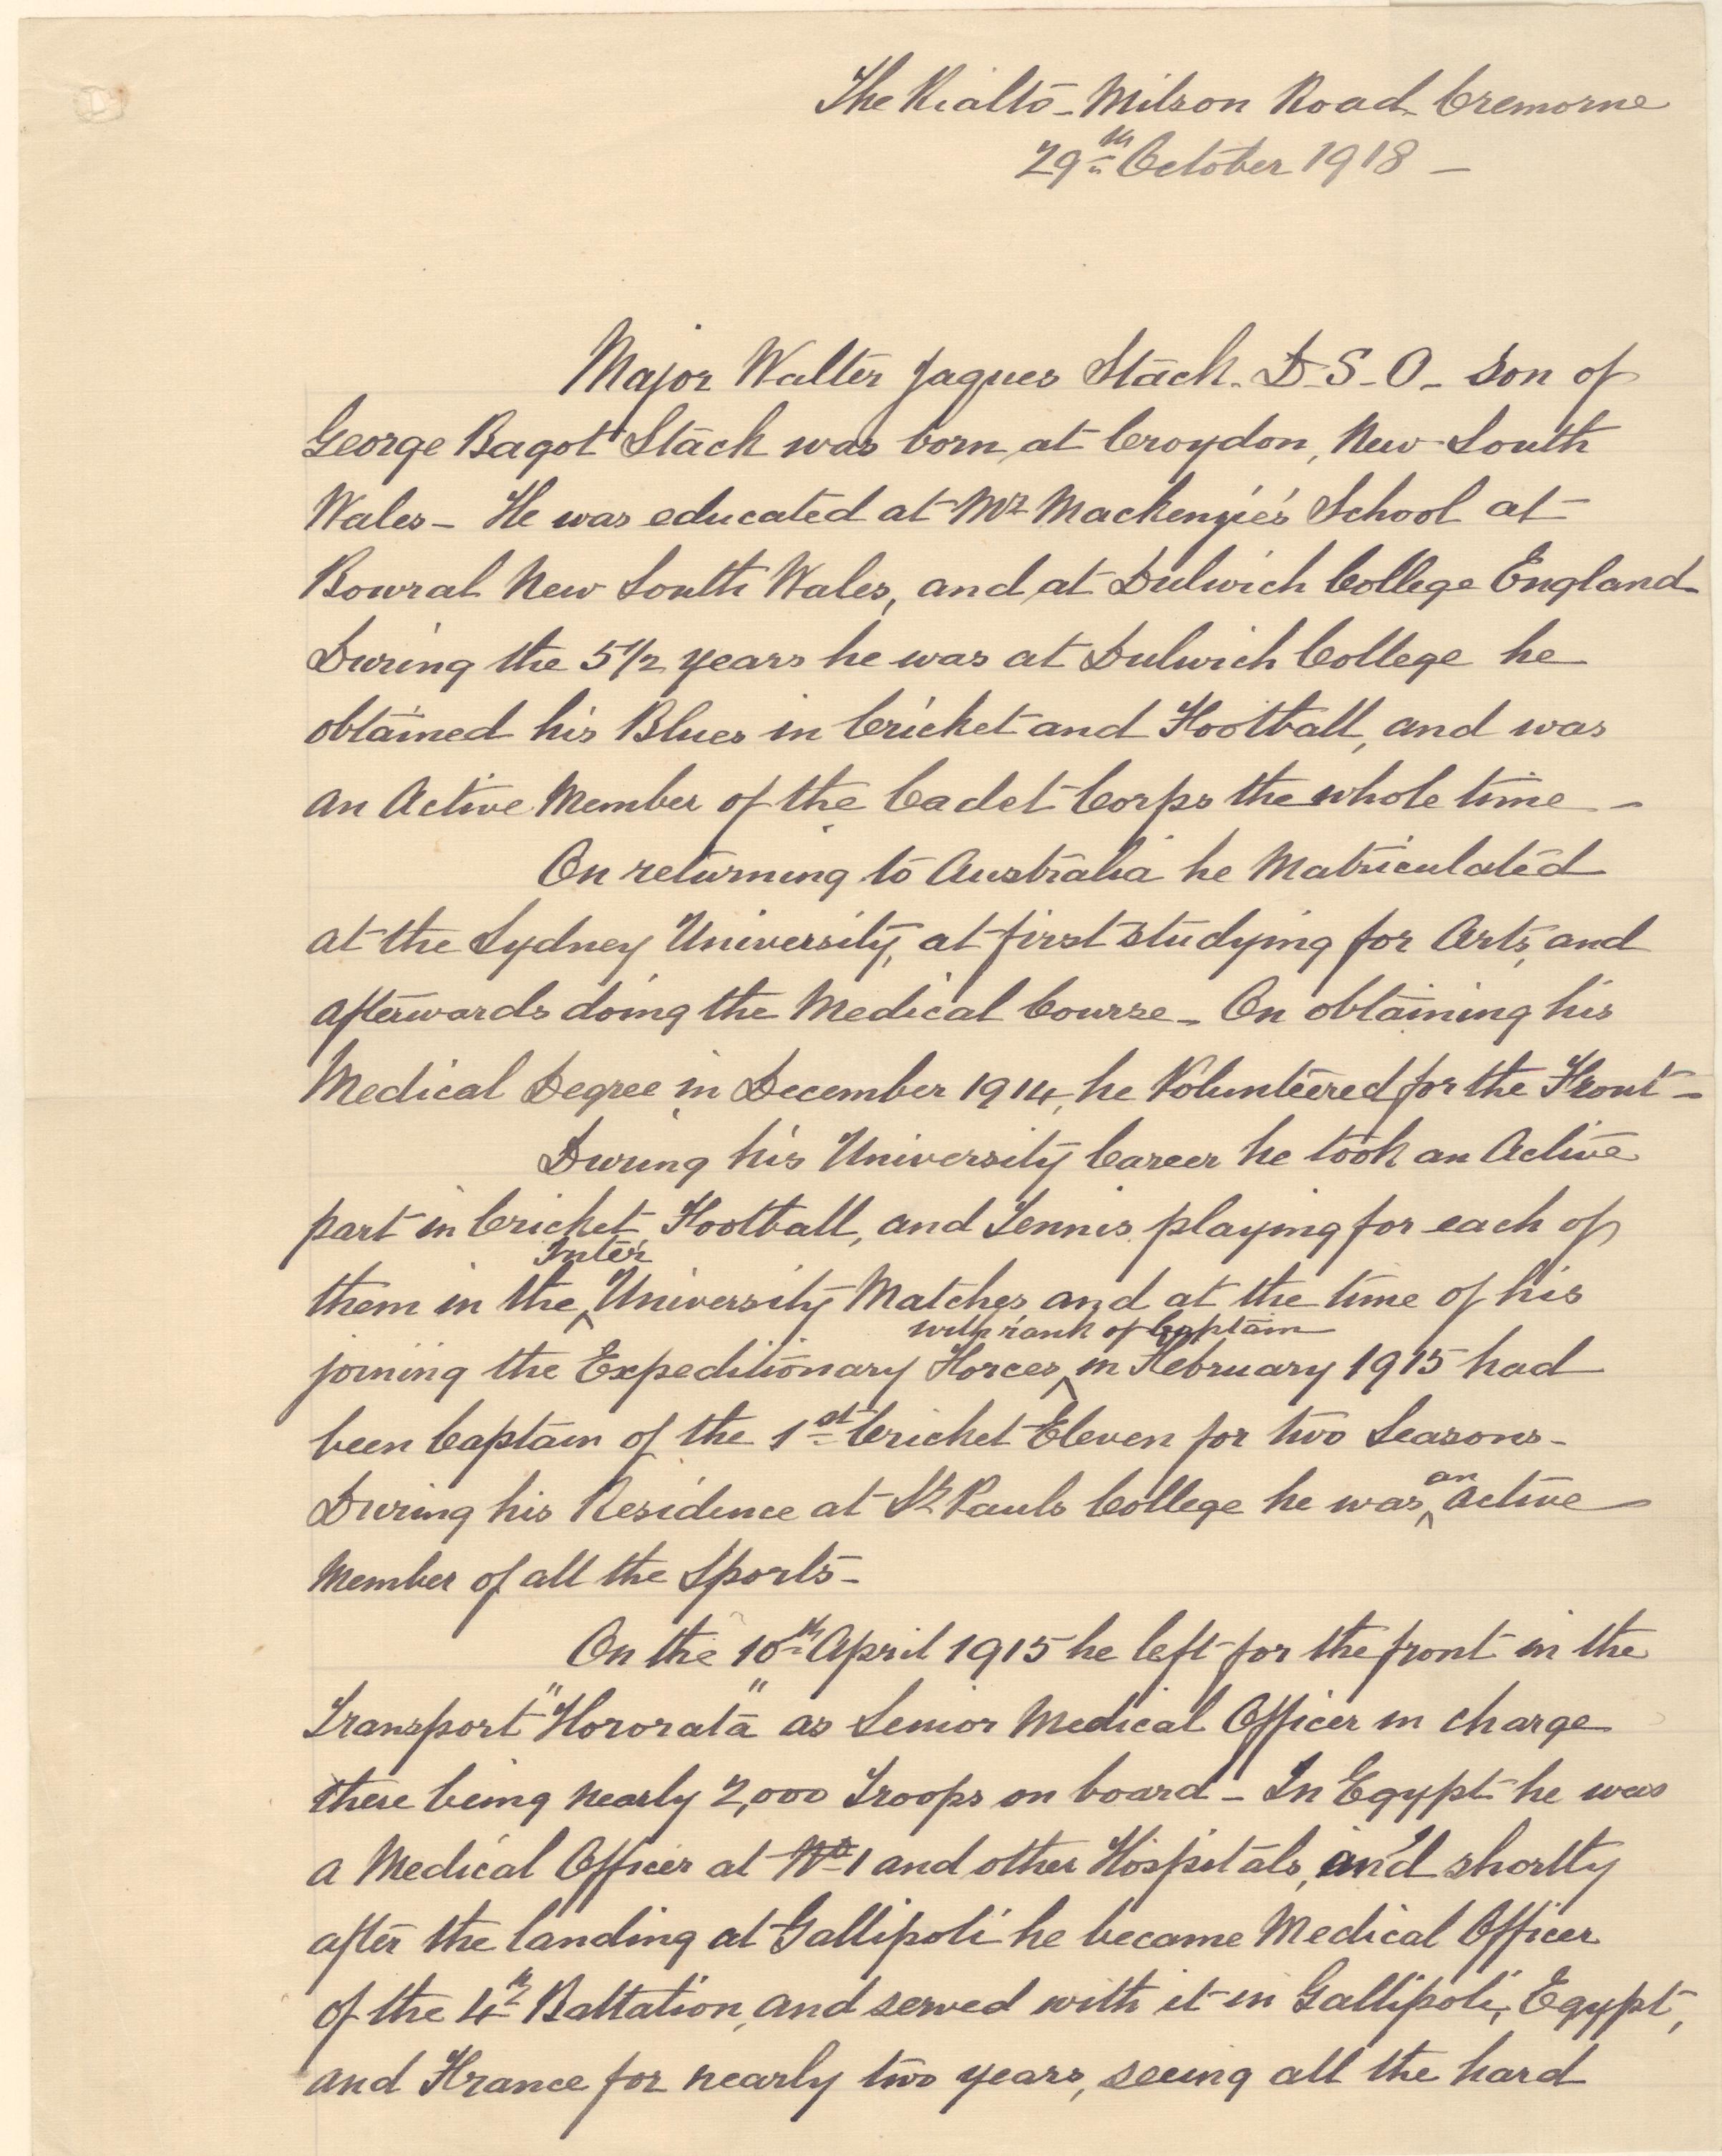 The Rialto - Milson Road Cremorne
29th October 1918 -
Major Walter Jaques Stack. D-S-O- Son of
George Bagot Stack was born at Croydon, New South
Wales - He was educated at Mr Mackenzie's School at
Bowral New South Wales, and at Dulwich College England
During the 5 1/2 years he was at Dulwich College he
obtained his Blues in Cricket and Football, and was
an Active Member of the Cadet Corps the whole time -
On returning to Australia he Matriculated
at the Sydney University, at first studying for Arts, and
afterwards doing the Medical Course - On obtaining his
Medical Degree in December 1914, he Volunteered for the Front -
During his University Career he took an Active
part in Cricket, Football, and Tennis, playing for each of
Inter
them in the ^ University Matches, and at the time of his
with rank of Captain
joining the Expeditionary Forces, ^ in February 1915 had
been Captain of the 1st Cricket Eleven for two Seasons -
an
During his Residence at St Pauls College he was ^ Active
Member of all the Sports -
On the 10th April 1915 he left for the front in the
Transport "Hororata" as Senior Medical Officer in charge
there being nearly 2,000 Troops on board - In Egypt he was
a Medical Officer at No 1 and other Hospitals, and shortly
after the landing at Gallipoli he became Medical Officer
of the 4th Battation, and served with it in Gallipoli, Egypt,
and France for nearly two years, seeing all the hard